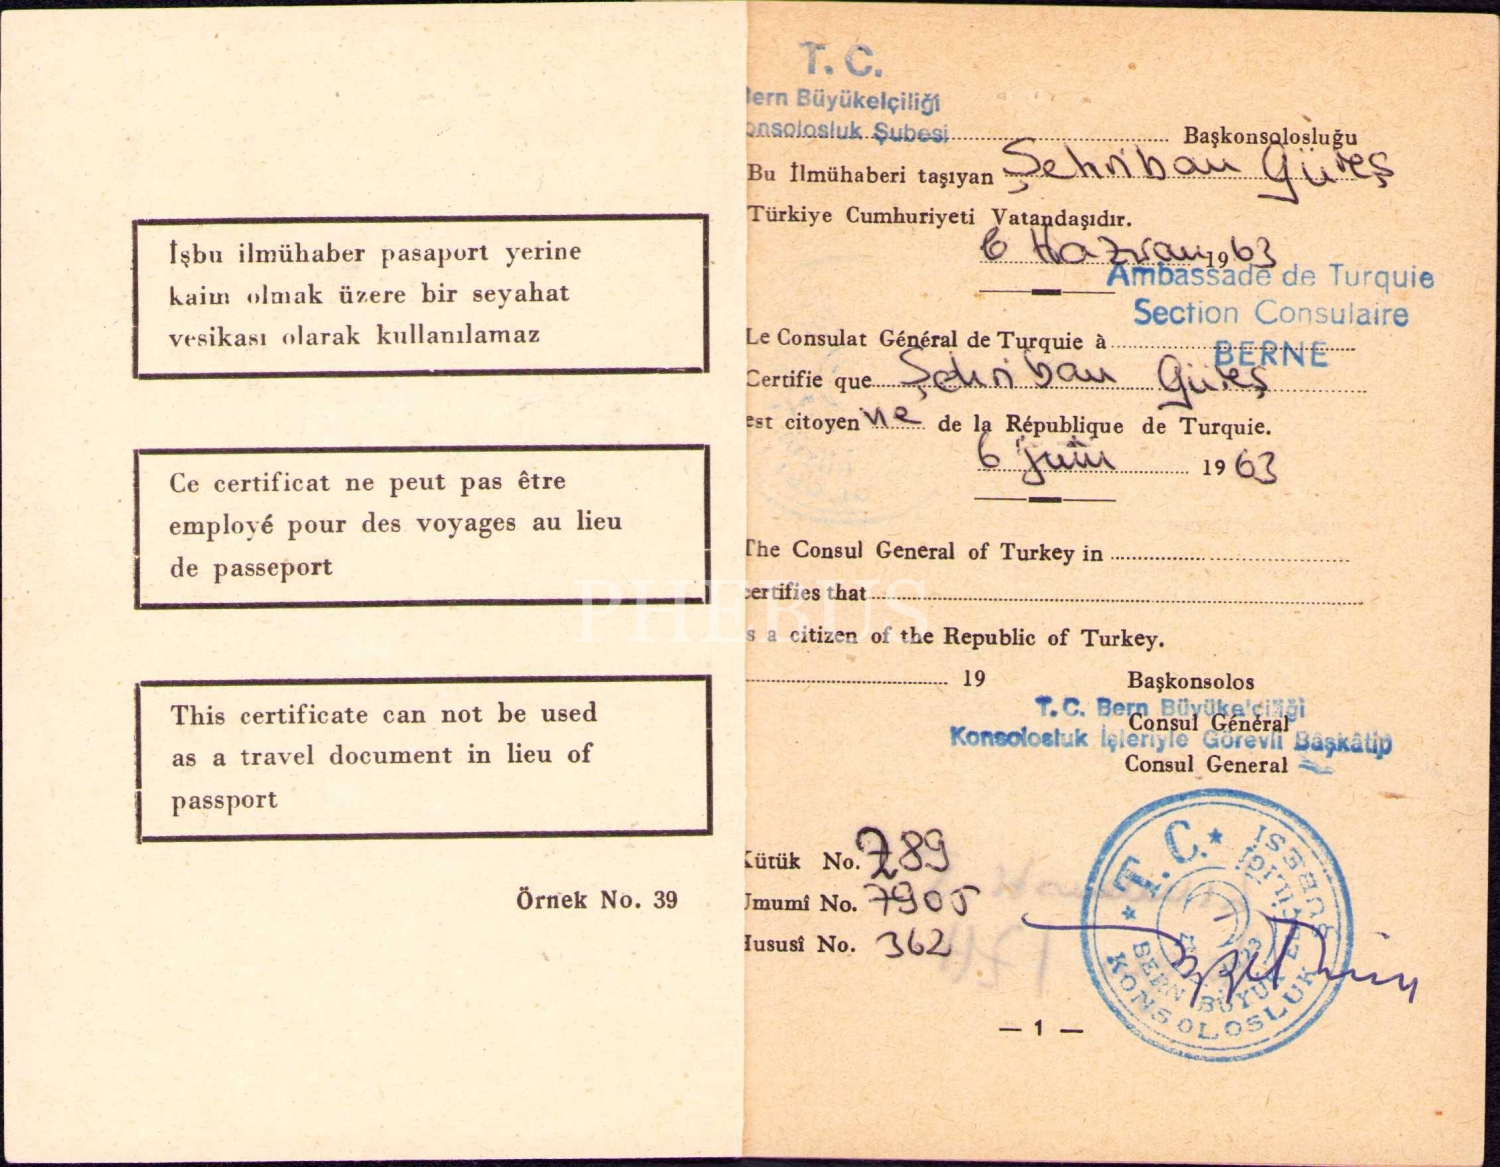 İşbu ilmühaber pasaport yerine
kaim olmak üzere bir seyahat
vesikası olarak kullanılamaz
Ce certificat ne peut pas être
employé pour des voyages au lieu
de passeport
This certificate can not be used
as a travel document in lieu of
passport
Örnek No. 39
T. C.
Bern Büyükelçiliği
Konsolosluk Şubesi
Başkonsolosluğu
Bu İlmühaberi taşıyan Şehriban Güreş
Türkiye Cumhuriyeti Vatandaşıdır.
6 Haziran 1963
Ambassade de Turquie
Section Consulaire
BERNE
Le Consulat Général de Turquie à
Certifie que Şehriban Güreş
est citoyenne de la République de Turquie.
6 juin 1963
The Consul General of Turkey in
certifies that
is a citizen of the Republic of Turkey.
19
Başkonsolos
T. C. Bern Büyükelçiliği
Consul Général
Konsolosluk İşleriyle Görevli Başkâtip
Consul General
Kütük No. 789
Umumî No. 7905
Hususî No. 362
T. C.
BERN BÜYÜK ELÇİLİĞİ
KONSOLOSLUK ŞUBESİ
— 1 —
PHEBUS